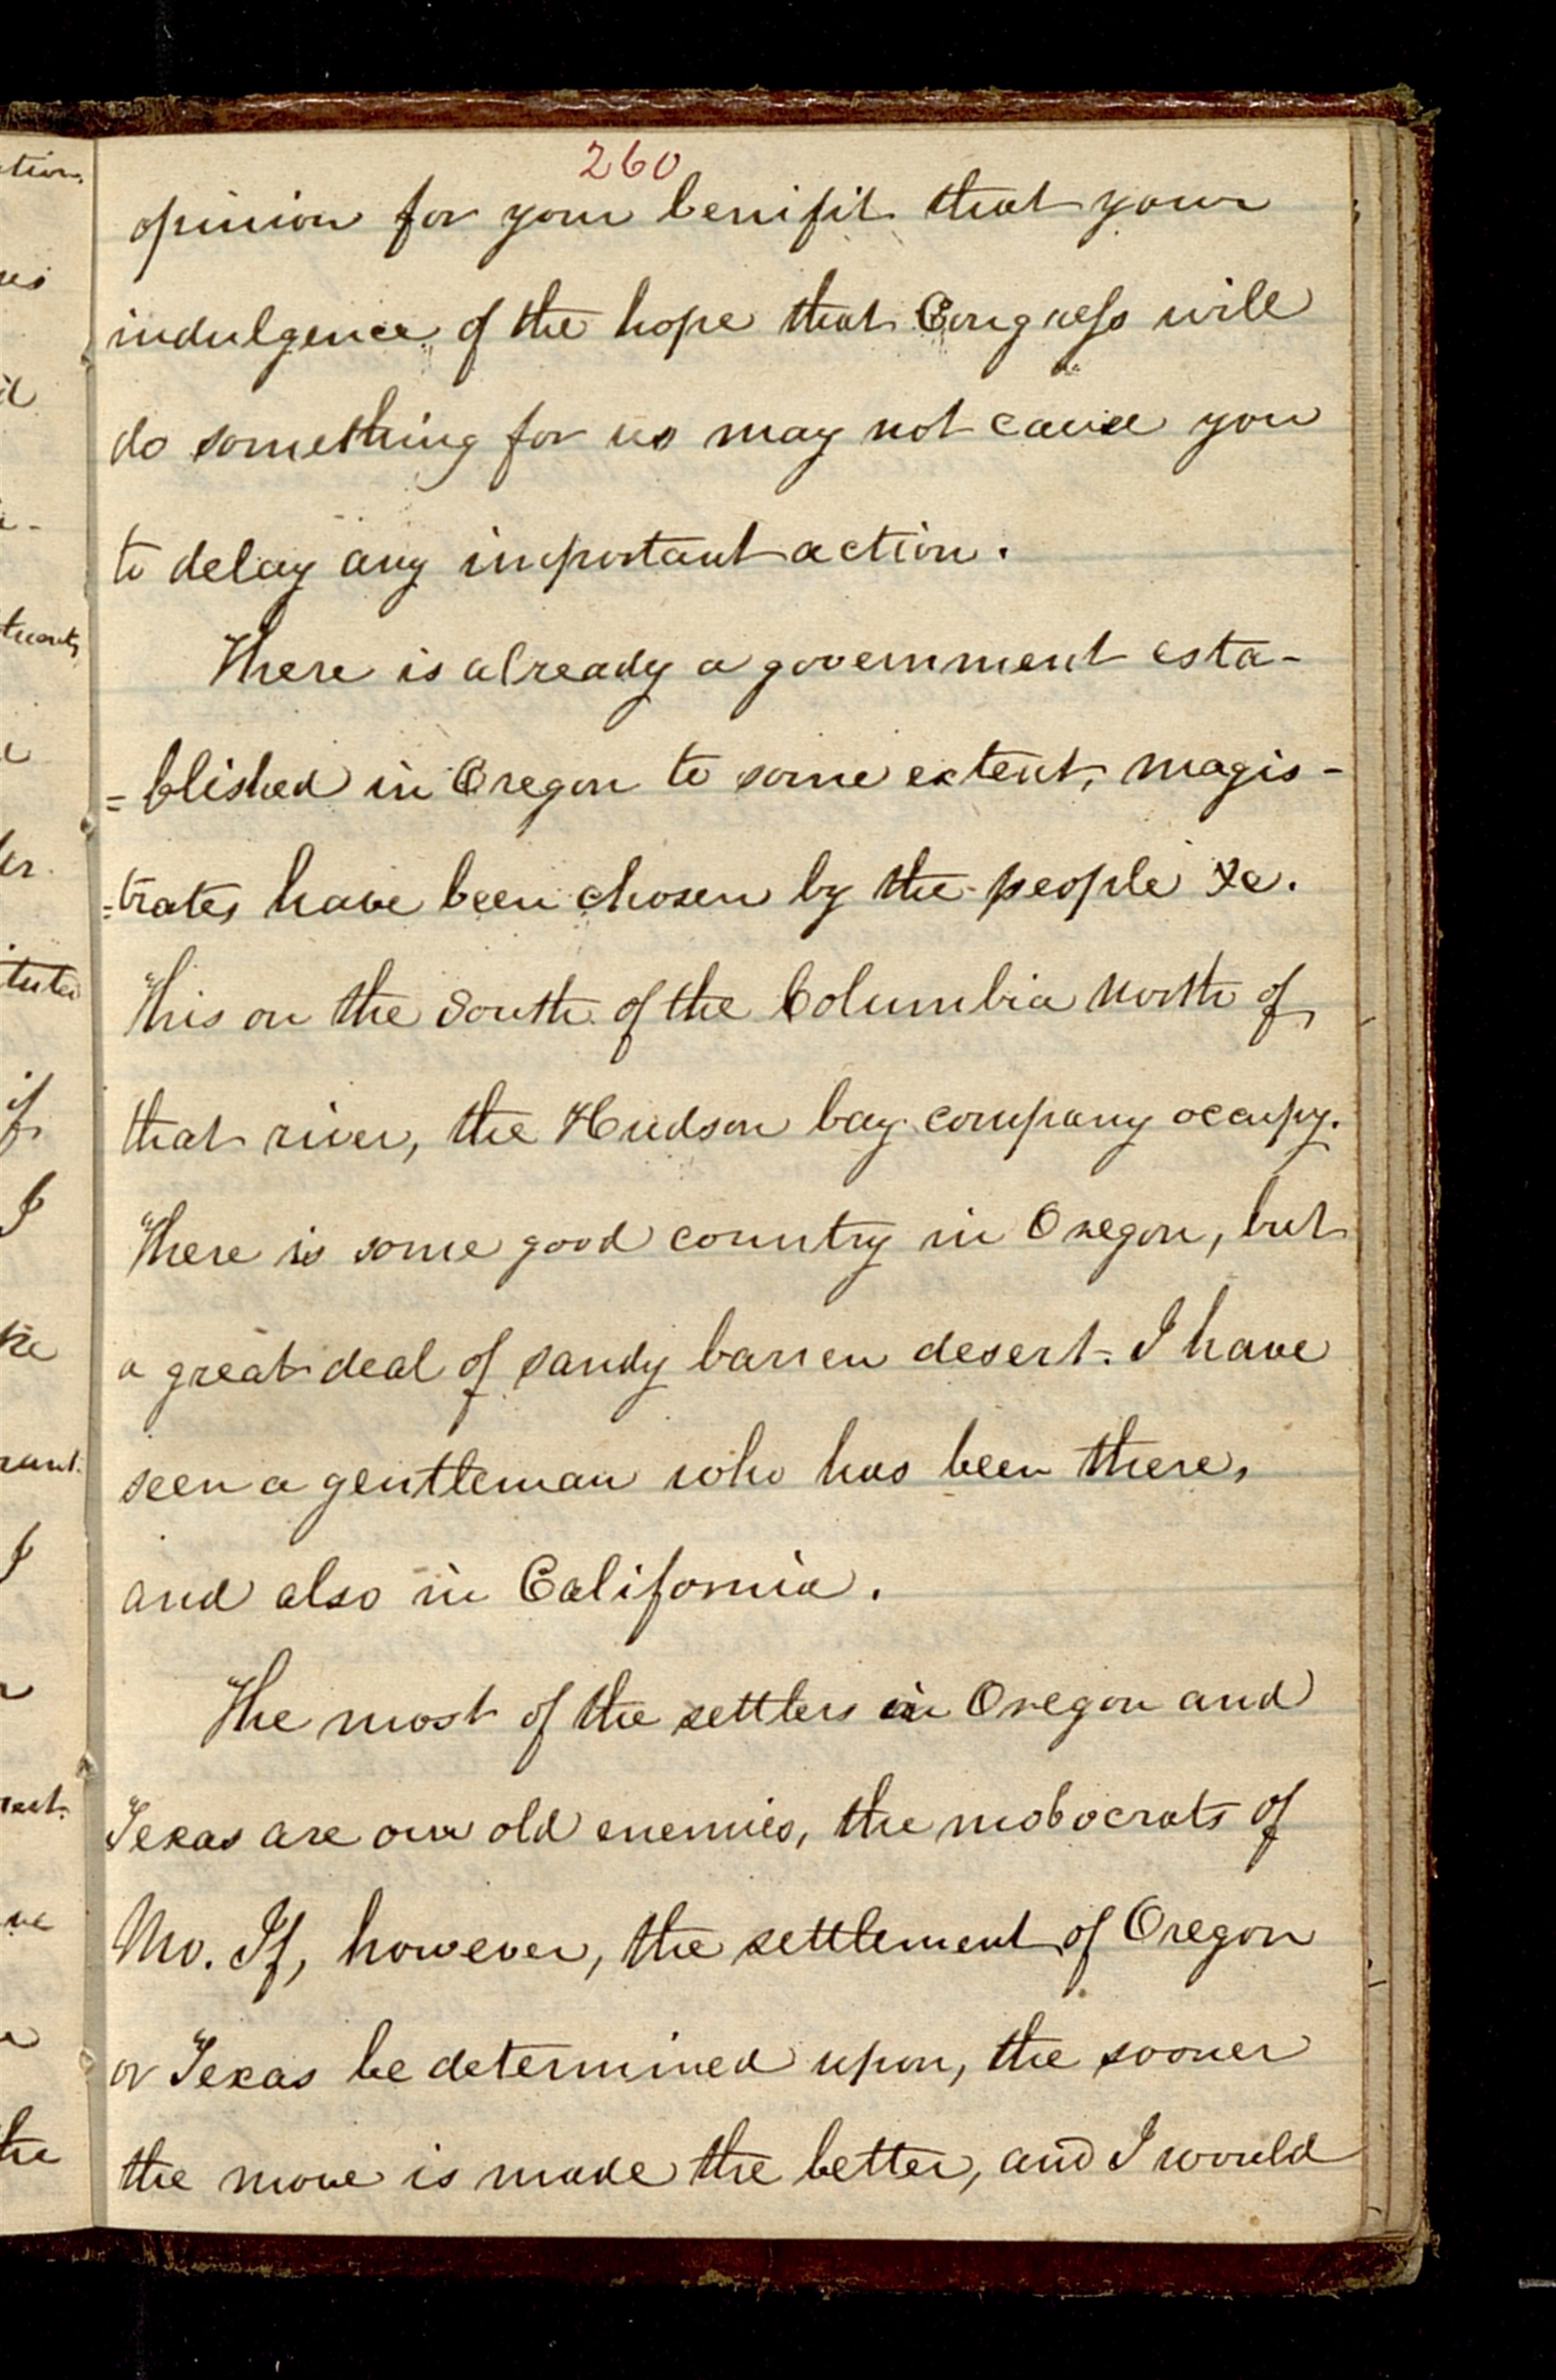 260
opinion for your benifit that your
indulgence of the hope that Congress will
do something for us may not cause you
to delay any important action.
There is already a government esta-
=blished in Oregon to some extent, magis-
=trates have been chosen by the people &c.
This on the South of the Columbia North of
that river, the Hudson bay company occupy.
There is some good country in Oregon, but
a great deal of sandy barren desert. I have
seen a gentleman who has been there,
and also in California.
The most of the settlers in Oregon and
Texas are our old enemies, the mobocrats of
Mo. If, however, the settlement of Oregon
or Texas be determined upon, the sooner
the move is made the better, and I would